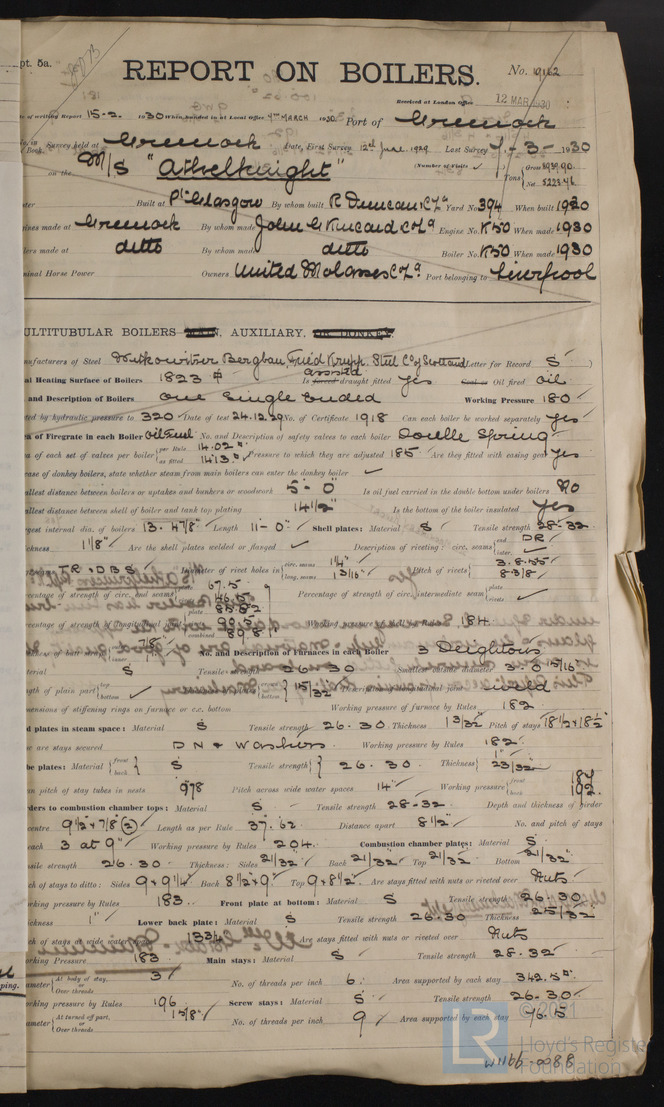 pt. 5a.
REPORT ON BOILERS.
No. 19162
Received at London Office 12 MAR 1930
of writing Report 15-2. 1930 When handed in at Local Office 4th MARCH 1930 Port of Greenock
Survey held at Greenock Date, First Survey 12th June, 1929 Last Survey 7-3-1930
Book.
on the M/S "Athelknight" (Number of Visits) Tons Gross 8939.90 Net 5223.46
Built at Pt Glasgow By whom built R Duncan & Co Ld Yard No. 394 When built 1930
ines made at Greenock By whom made John G Kincaid & Co Ld Engine No. K50 When made 1930
lers made at ditto By whom made ditto Boiler No. K50 When made 1930
minal Horse Power Owners United Molasses Co Ld Port belonging to Liverpool
ULTITUBULAR BOILERS MAIN, AUXILIARY, OR DONKEY.
nufacturers of Steel Witkowitzer Bergbau, Fried Krupp, Steel Co of Scotland Letter for Record S
al Heating Surface of Boilers 1823 Is forced assisted draught fitted yes Coal or Oil fired oil
and Description of Boilers One Single Ended Working Pressure 180
ted by hydraulic pressure to 320 Date of test 24.12.29 No. of Certificate 1918 Can each boiler be worked separately yes
of Firegrate in each Boiler Oil Fuel No. and Description of safety valves to each boiler Double Spring
a of each set of valves per boiler per Rule 14.02 as fitted 14.13 Pressure to which they are adjusted 185 Are they fitted with easing gear yes
case of donkey boilers, state whether steam from main boilers can enter the donkey boiler ✓
allest distance between boilers or uptakes and bunkers or woodwork 5'-0" Is oil fuel carried in the double bottom under boilers No
allest distance between shell of boiler and tank top plating 14½" Is the bottom of the boiler insulated yes
rgest internal dia. of boilers 13'-4⅞" Length 11'-0" Shell plates: Material S Tensile strength 28-32
ckness 1⅛" Are the shell plates welded or flanged ✓ Description of riveting: circ. seams end DR inter. ✓
TR & DBS Diameter of rivet holes in circ. seams 1¼" long. seams 1 3/16" Pitch of rivets 3.855 8⅜"
centage of strength of circ. end seams 67.5 46.5 Percentage of strength of circ. intermediate seam plate rivets ✓
centage of strength of longitudinal plate 85.82 rivets 90.3 combined 89.8 Working pressure of shell by Rules 184
No. and Description of Furnaces in each Boiler 3 Deightons
terial S Tensile strength 26-30 Smallest outside diameter 3'-0 15/16"
gth of plain part top bottom ✓ 15/32 Description of longitudinal joint weld
mensions of stiffening rings on furnace or c.c. bottom Working pressure of furnace by Rules 182
d plates in steam space: Material S Tensile strength 26-30 Thickness 1 3/32" Pitch of stays 18½ x 18½
w are stays secured DN & Washers Working pressure by Rules 182
be plates: Material front back S Tensile strength 26-30 Thickness 1" 23/32"
an pitch of stay tubes in nests 9.78 Pitch across wide water spaces 14" Working pressure front 184 back 192
ders to combustion chamber tops: Material S Tensile strength 28-32 Depth and thickness of girder
centre 9½ x ⅞ (2) Length as per Rule 37.62 Distance apart 8½" No. and pitch of stays
each 3 at 9" Working pressure by Rules 204 Combustion chamber plates: Material S
nsile strength 26-30 Thickness: Sides 21/32" Back 21/32" Top 21/32" Bottom 21/32"
ch of stays to ditto: Sides 9 x 9¼" Back 8½ x 9" Top 9 x 8½" Are stays fitted with nuts or riveted over Nuts
rking pressure by Rules 183 Front plate at bottom: Material S Tensile strength 26-30
ickness 1" Lower back plate: Material S Tensile strength 26-30 Thickness 25/32
ch of stays at wide water space 13¾ Are stays fitted with nuts or riveted over Nuts
orking Pressure 183 Main stays: Material S Tensile strength 28-32
ameter At body of stay, or Over threads 3" No. of threads per inch 6 Area supported by each stay 342.5
orking pressure by Rules 196 Screw stays: Material S Tensile strength 26-30
ameter At turned off part, or Over threads 1⅝" No. of threads per inch 9 Area supported by each stay 76.5
ping.
© 2021
LR Lloyd's Register Foundation
W1166-0088